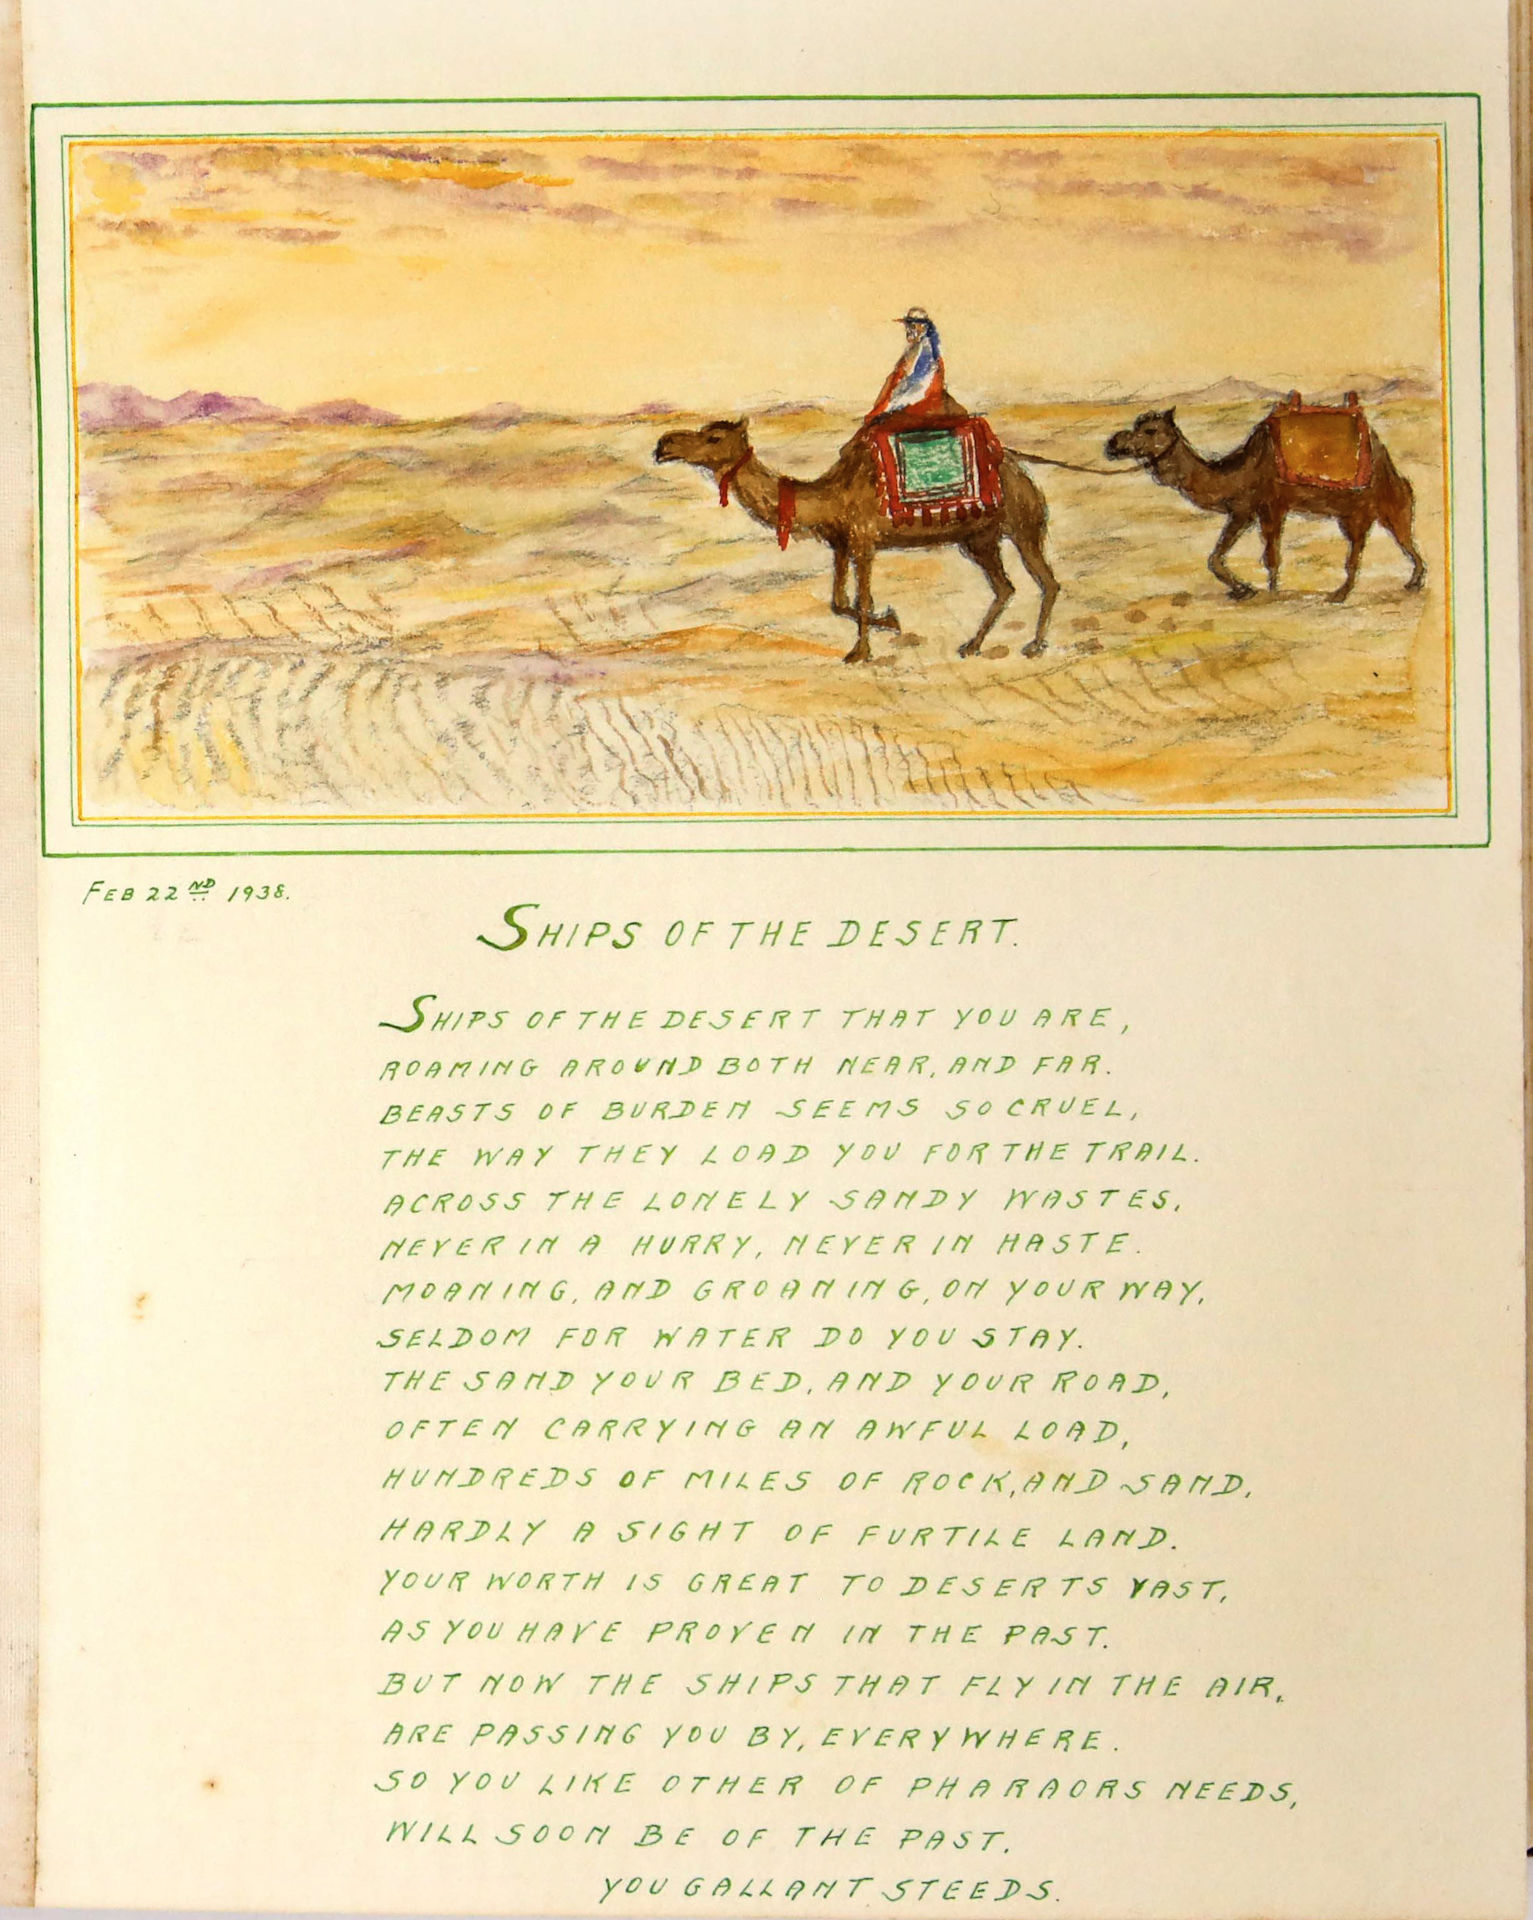 FEB 22ND 1938.
SHIPS OF THE DESERT.
SHIPS OF THE DESERT THAT YOU ARE,
ROAMING AROUND BOTH NEAR, AND FAR.
BEASTS OF BURDEN SEEMS SO CRUEL,
THE WAY THEY LOAD YOU FOR THE TRAIL.
ACROSS THE LONELY SANDY WASTES,
NEVER IN A HURRY, NEVER IN HASTE.
MOANING, AND GROANING, ON YOUR WAY,
SELDOM FOR WATER DO YOU STAY.
THE SAND YOUR BED, AND YOUR ROAD,
OFTEN CARRYING AN AWFUL LOAD,
HUNDREDS OF MILES OF ROCK, AND SAND,
HARDLY A SIGHT OF FURTILE LAND.
YOUR WORTH IS GREAT TO DESERTS VAST,
AS YOU HAVE PROVEN IN THE PAST.
BUT NOW THE SHIPS THAT FLY IN THE AIR,
ARE PASSING YOU BY, EVERYWHERE.
SO YOU LIKE OTHER OF PHARAORS NEEDS,
WILL SOON BE OF THE PAST.
YOU GALLANT STEEDS.